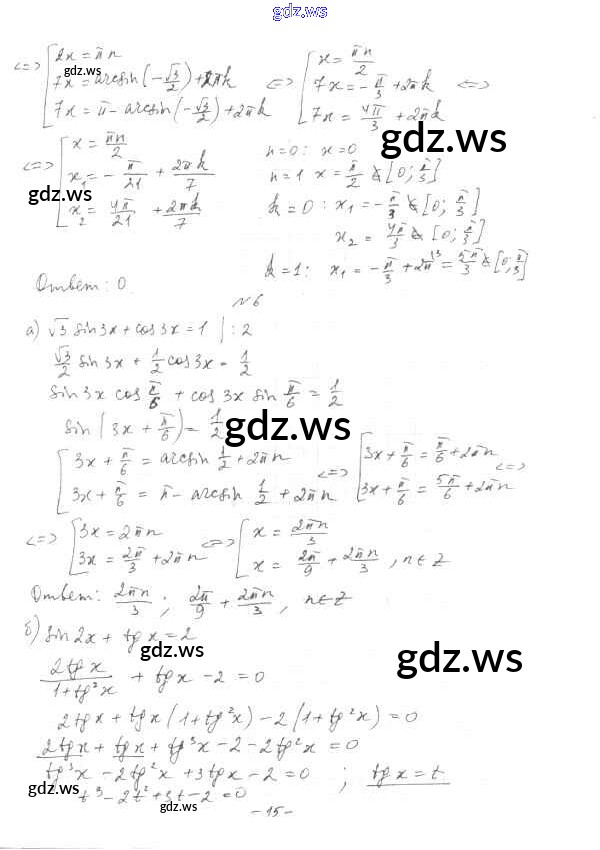 gdz.ws
<=> [ 2x = πn
7x = arcsin(-√3/2) + 2πk
7x = π - arcsin(-√3/2) + 2πk
<=> [ x = πn/2
7x = -π/3 + 2πk
7x = 4π/3 + 2πk <=>
gdz.ws
<=> [ x = πn/2
x₁ = -π/21 + 2πk/7
x₂ = 4π/21 + 2πk/7
gdz.ws
n=0: x=0
n=1 x = π/2 ∉ [0; π/3]
k=0: x₁ = -π/3 ∉ [0; π/3]
x₂ = 4π/3 ∉ [0; π/3]
k=1: x₁ = -π/3 + 2π = 5π/3 ∉ [0; π/3]
gdz.ws
Ответ: 0
№6
а) √3 sin3x + cos3x = 1 | :2
√3/2 sin3x + 1/2 cos3x = 1/2
sin3x cos π/6 + cos3x sin π/6 = 1/2
sin(3x + π/6) = 1/2
gdz.ws
[ 3x + π/6 = arcsin 1/2 + 2πn
3x + π/6 = π - arcsin 1/2 + 2πn
<=> [ 3x + π/6 = π/6 + 2πn
3x + π/6 = 5π/6 + 2πn <=>
<=> [ 3x = 2πn
3x = 2π/3 + 2πn
<=> [ x = 2πn/3
x = 2π/9 + 2πn/3, n∈Z
Ответ: 2πn/3; 2π/9 + 2πn/3, n∈Z
б) sin2x + tgx = 2
gdz.ws
2tgx/(1+tg²x) + tgx - 2 = 0
gdz.ws
2tgx + tgx(1+tg²x) - 2(1+tg²x) = 0
2tgx + tgx + tg³x - 2 - 2tg²x = 0
tg³x - 2tg²x + 3tgx - 2 = 0; tgx = t
t³ - 2t² + 3t - 2 = 0
gdz.ws
gdz.ws
- 15 -